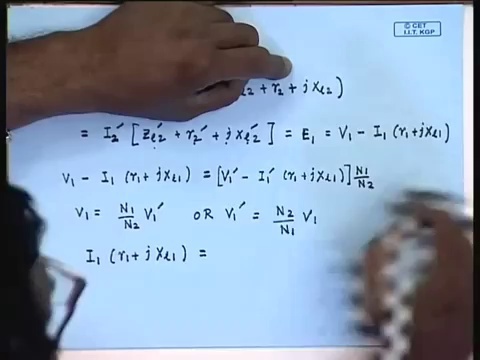 © CET
I.I.T. KGP
+ r₂ + j x_l2)
= I₂′ [ Z_L2′ + r₂′ + j x_l2′ ] = E₁ = V₁ − I₁ (r₁ + j x_l1)
V₁ − I₁ (r₁ + j x_l1) = [V₁′ − I₁′ (r₁ + j x_l1)] N₁/N₂
V₁ = N₁/N₂ V₁′ OR V₁′ = N₂/N₁ V₁
I₁ (r₁ + j x_l1) =